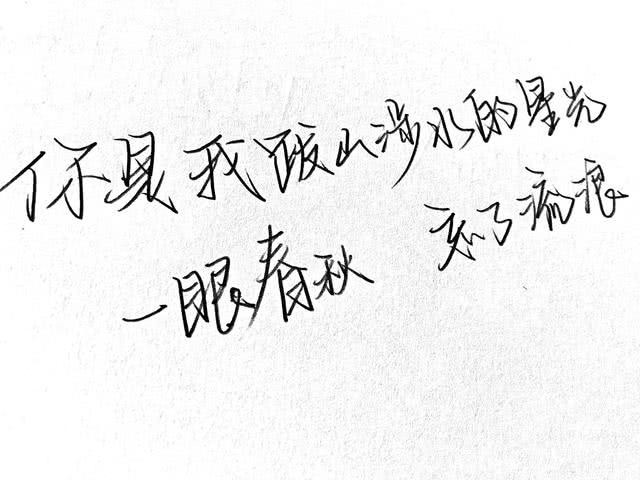 你是我跋山涉水的星光
一眼春秋 忘了流痕